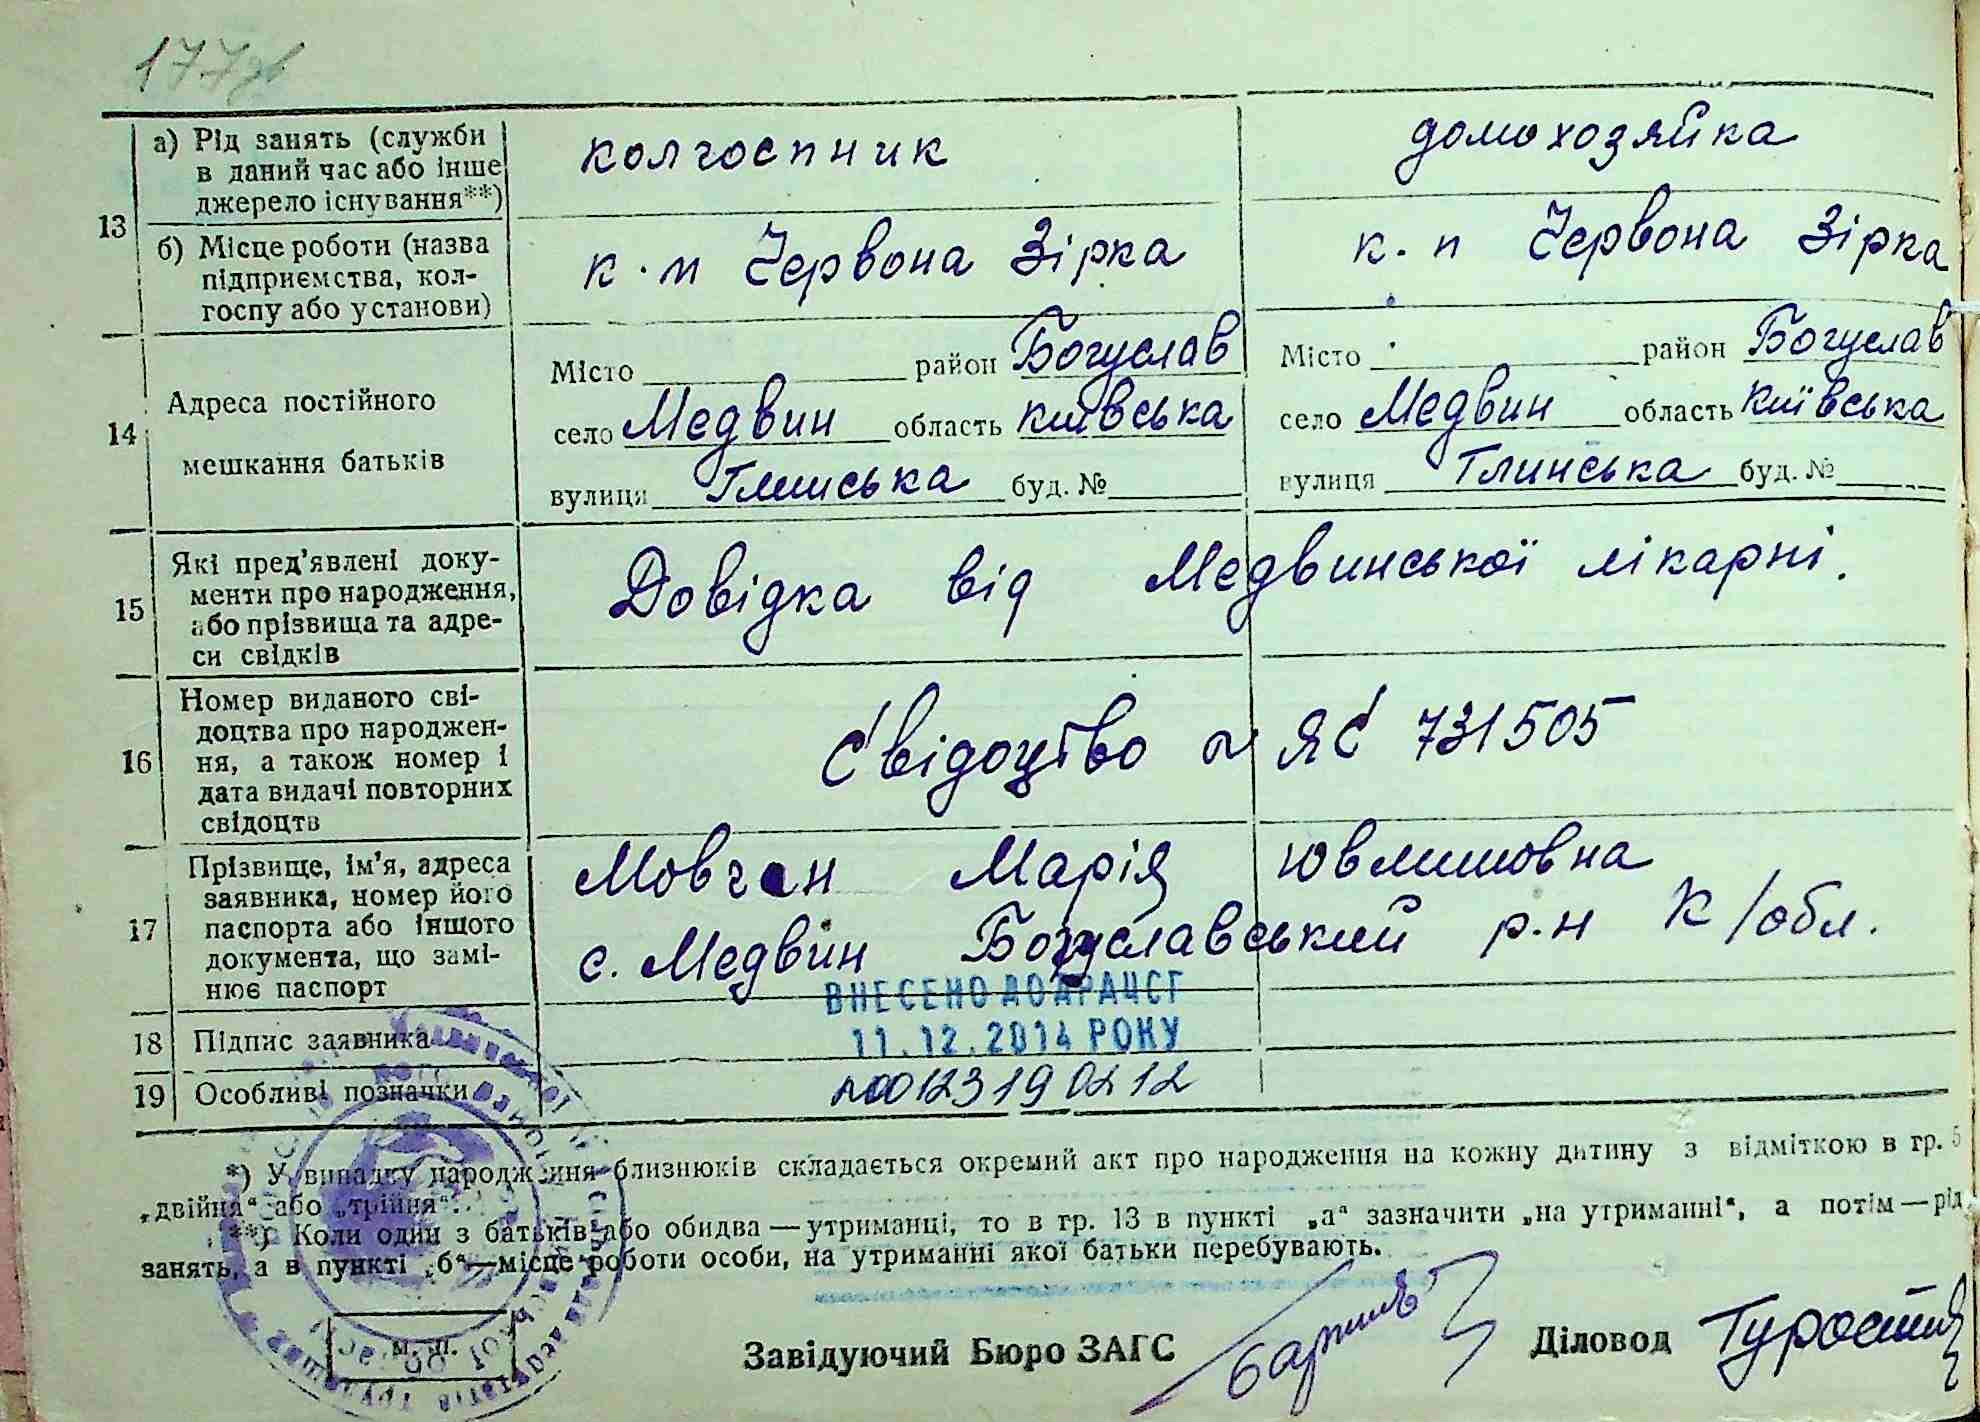 177 зв
13
а) Рід занять (служби
в даний час або інше
джерело існування**)
колгоспник
домохозяйка
б) Місце роботи (назва
підприємства, кол-
госпу або установи)
к-п Червона Зірка
к.п Червона Зірка
14
Адреса постійного
мешкання батьків
Місто район Богуслав
село Медвин область Київська
вулиця Глинська буд. №
Місто район Богуслав
село Медвин область Київська
вулиця Глинська буд. №
15
Які пред'явлені доку-
менти про народження,
або прізвища та адре-
си свідків
Довідка від Медвинської лікарні.
16
Номер виданого сві-
доцтва про народжен-
ня, а також номер і
дата видачі повторних
свідоцтв
Свідоцтво № ЯС 731505
17
Прізвище, ім'я, адреса
заявника, номер його
паспорта або іншого
документа, що замі-
нює паспорт
Мовчан Марія
с. Медвин Богуславський р-н К/обл.
ВНЕСЕНО ДО ДРАЦСГ
11.12.2014 РОКУ
18 Підпис заявника
19 Особливі позначки
№00123190212
*) У випадку народження близнюків складається окремий акт про народження на кожну дитину з відміткою в гр. 5
„двійня“ або „трійня“.
**) Коли один з батьків або обидва — утриманці, то в гр. 13 в пункті „а“ зазначити „на утриманні“, а потім — рід
занять, а в пункті „б“—місце роботи особи, на утриманні якої батьки перебувають.
м. п.
Завідуючий Бюро ЗАГС
Діловод